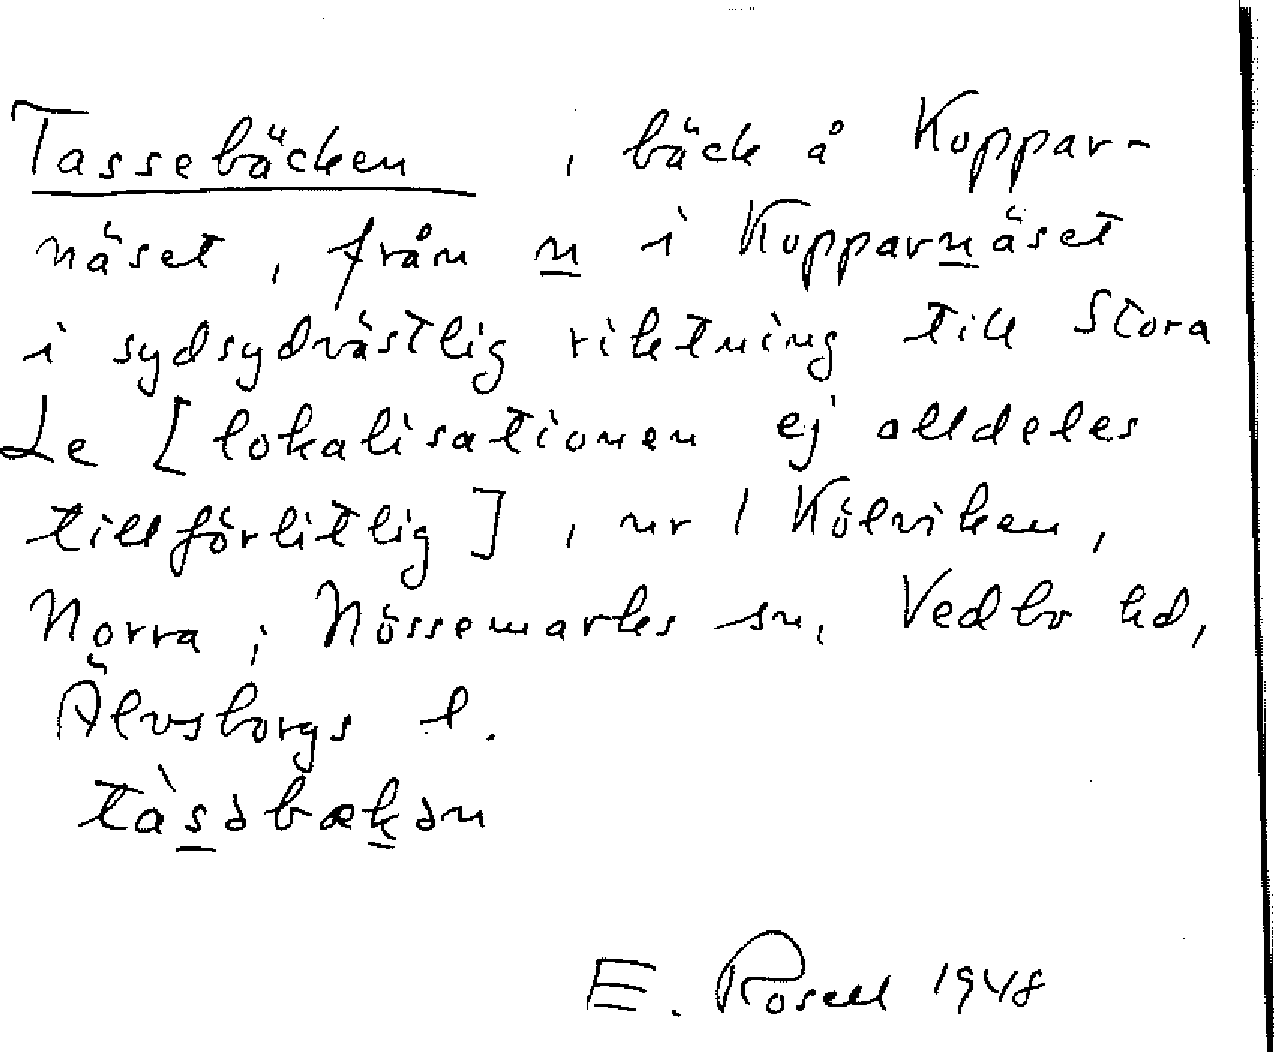 Tassebäcken, bäck å Koppar-
näset, från n i Kopparnäset
i sydsydvästlig riktning till Stora
Le [lokalisationen ej alldeles
tillförlitlig], nr 1 Kölviken,
Norra; Nössemarks sn, Vedbo hd,
Älvsborgs l.
tàsəbækən
E. Rosell 1948